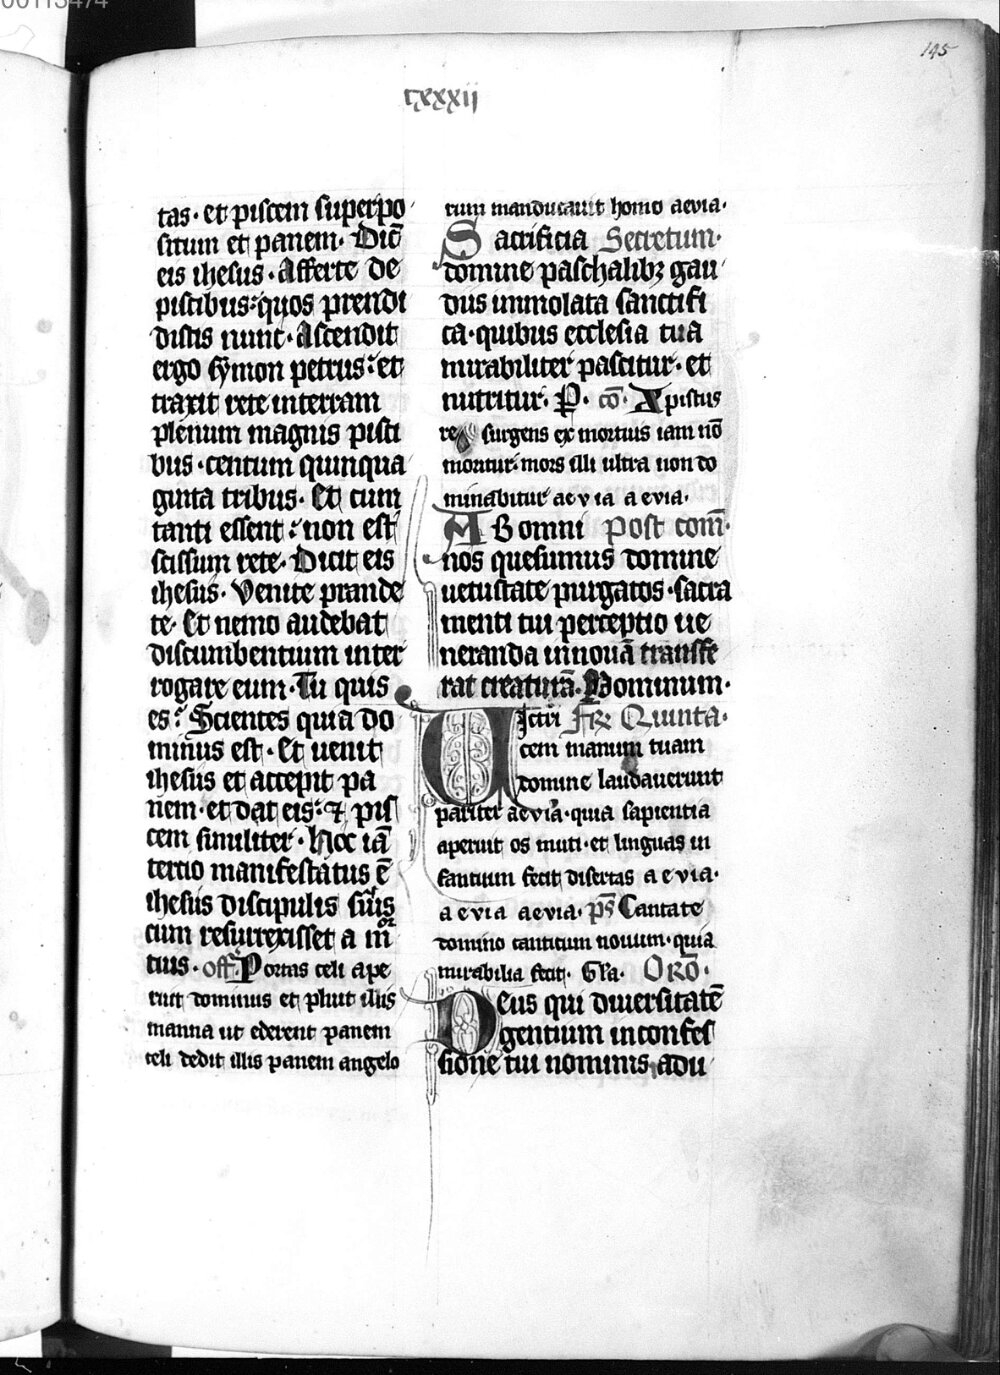 00113474
145
cxxxii
tas· et piscem superpo
situm et panem· Dic̄
eis ihesus· Afferte de
piscibus: quos prendi
distis nunc· Ascendit
ergo symon petrus: et
traxit rete interram
plenum magnis pisci
bus· centum quinqua
ginta tribus· Et cum
tanti essent: non est
scissum rete· Dicit eis
ihesus· Venite prande
te· Et nemo audebat
discumbentium inter
rogare eum· Tu quis
es: Scientes quia do
minus est· Et uenit
ihesus et accepit pa
nem· et dat eis: ⁊ pis
cem similiter· Hoc iā
tertio manifestatus ē
ihesus discipulis suis
cum resurrexisset a mor
tuis· off̄· Portas celi ape
ruit dominus et pluit illis
manna ut ederent panem
celi dedit illis panem angelo
rum manducauit homo aevia·
Sacrificia Secretum·
domine paschalibꝫ gau
diis immolata sanctifi
ca· quibus ecclesia tua
mirabiliter pascitur· et
nutritur· P· cō· Xpistus
resurgens ex mortuis iam nō
moritur· mors illi ultra non do
minabitur aevia aevia·
AB omni Post com̄·
nos quesumus domine
uetustate purgatos· sacra
menti tui perceptio ue
neranda innouā transfe
rat creaturā· P dominum·
Victri Fr̄ Quinta·
cem manum tuam
domine laudauerunt
pariter aevia· quia sapientia
aperuit os muti· et linguas in
fantium fecit disertas aevia·
aevia aevia· p̄s Cantate
domino canticum nouum· quia
mirabilia fecit· Gl̄a· Orō·
Deus qui diuersitatē
gentium in confes
sione tui nominis adu